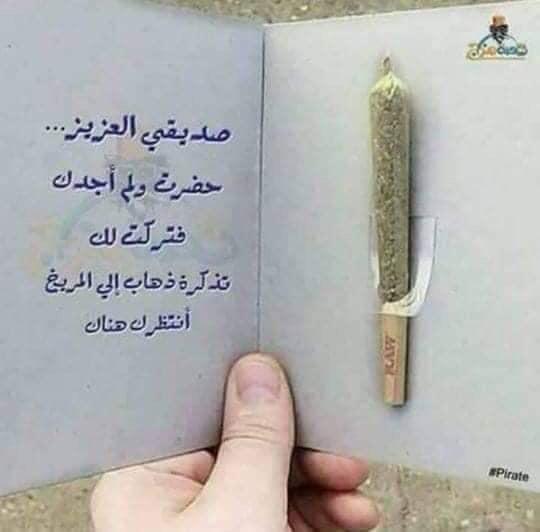 صديقي العزيز...
حضرت ولم أجدك
فتركت لك
تذكرة ذهاب إلي المريخ
أنتظرك هناك
RAW
#Pirate